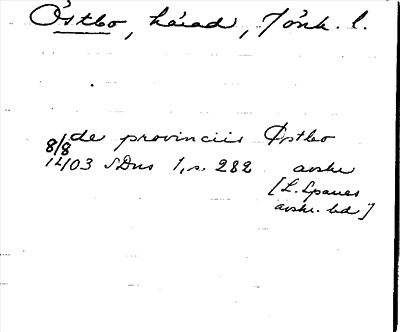 Östbo, härad, Jönk. l.
de provinciis Østbo
8/8
1403 SDns 1, s. 282 avskr
[L. Spaues
avskr. bd]